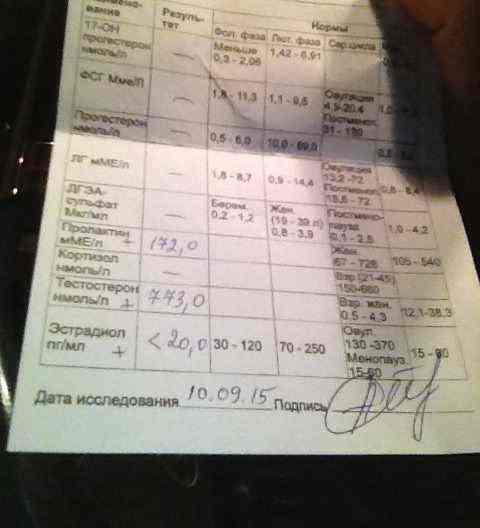 вание Резуль-тат Нормы
Фол. фаза Лют. фаза Сер.цикла
17-ОН прогестерон нмоль/л — Меньше 0,3 - 2,06 1,42 - 6,91
ФСГ Мме/Л — 1,8 - 11,3 1,1 - 9,5 Овуляция 4,9-20,4 Постменоп. 31 - 130
Прогестерон нмоль/л — 0,5 - 6,0 10,0 - 89,0
ЛГ мМЕ/л — 1,8 - 8,7 0,9 - 14,4 Овуляция 13,2 -72 Постменоп. 18,6 - 72
ДГЭА-сульфат Мкг/мл — Берем. 0,2 - 1,2 Жен. (19 - 39 л) 0,8 - 3,9 Постмено-пауза 0,1 - 2,6 1,0 - 4,2
Пролактин мМЕ/л + 172,0 Жен. 67 - 726 105 - 540
Кортизол нмоль/л — Взр (21-45) 150-660
Тестостерон нмоль/л + 773,0 Взр. жен. 0,5 - 4,3 12,1-38,3
Эстрадиол пг/мл + <20,0 30 - 120 70 - 250 Овул. 130 -370 Менопауз. 15-60 15 - 60
Дата исследования 10.09.15 Подпись